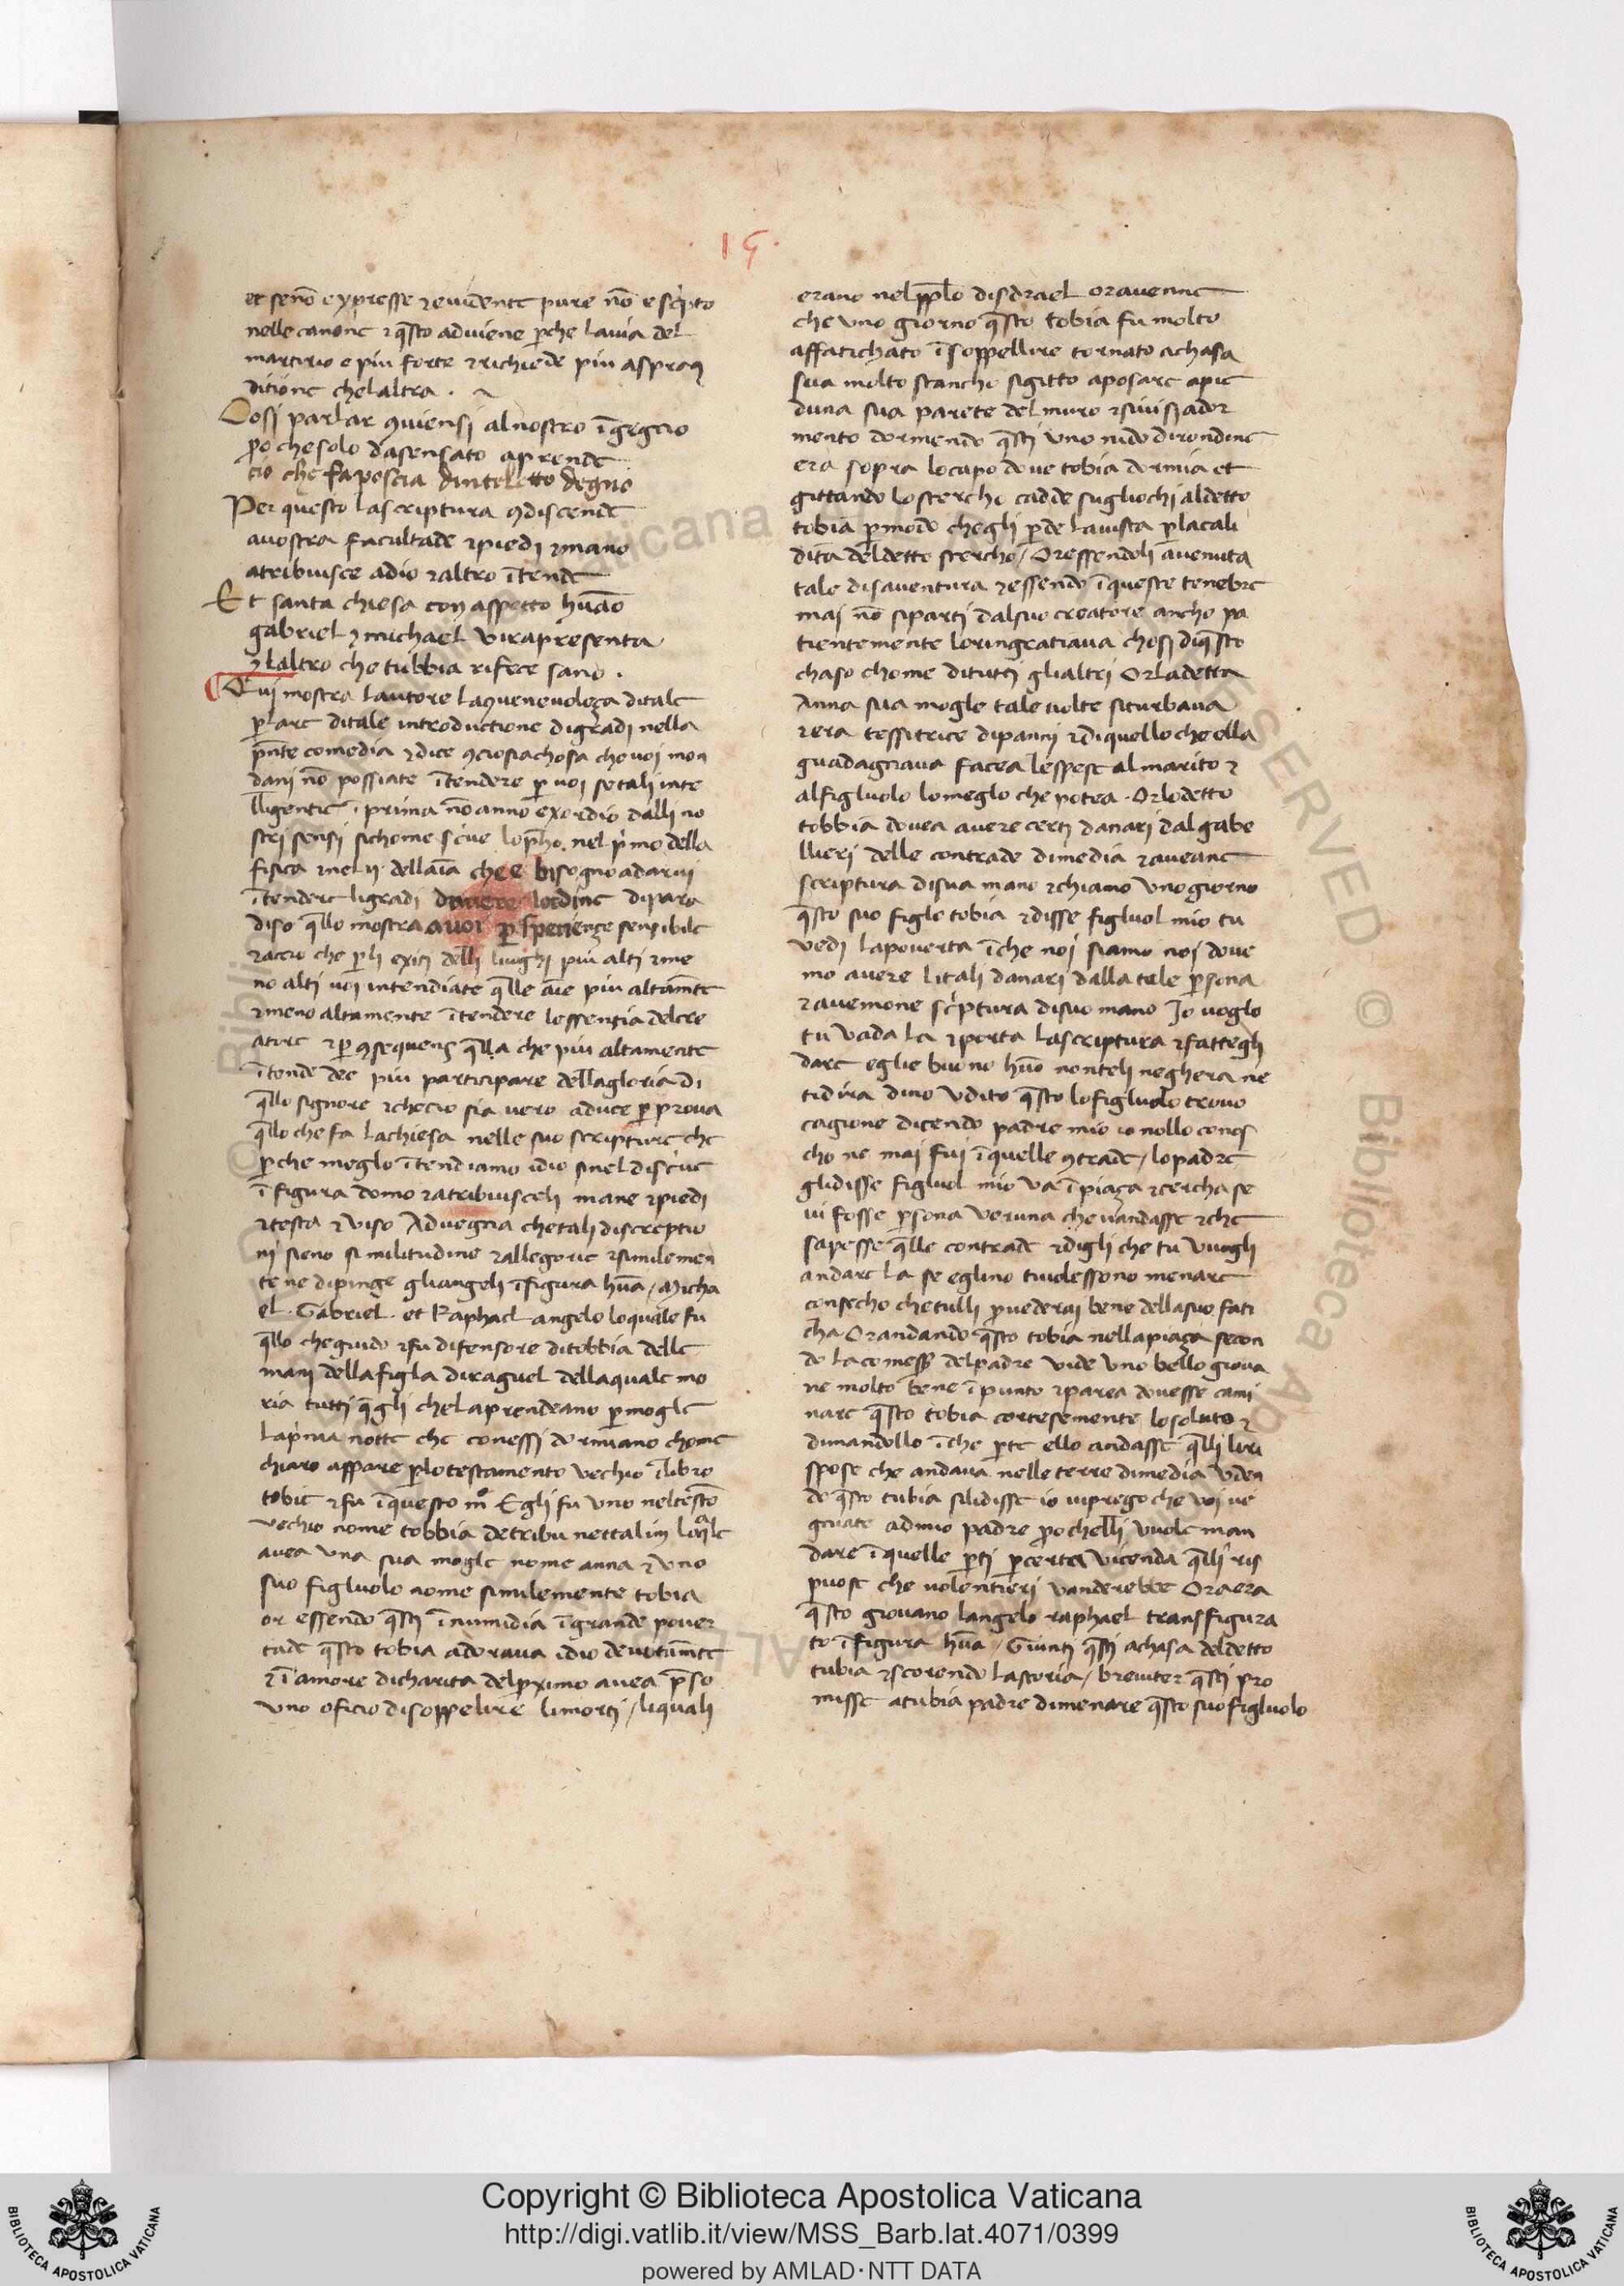 19
et senō expresse ⁊ euidente pure nō e scipto
nelle canone ⁊ q̄sto aduiene ꝑche lauia del
martirio e piu forte ⁊ richiede piu aspra ꝯ
ditione chelaltra .
Cosi parlar ꝯuiensi al nostro īgegno
ꝑo che solo dasensato aprende
cio che fa poscia dintelletto degno
Per questo lascriptura ꝯdiscende
auostra facultade ⁊ piedi ⁊ mano
atribuisce adio ⁊ altro ītende
Et santa chiesa con aspetto huāo
gabriel ⁊ michael vi rapresenta
⁊ laltro che tubbia rifece sano .
Qui mostra lautore laꝯueneuoleça ditale
ꝑlare ditale introductione digradi nella
pn̄te comedia ⁊ dice ꝯciosiachosa che uoi mon
dani nō possiate ītendere ꝑ uoi se tali inte
lligentie ī prima nō anno exordio dalli no
stri sensi sichome sciue lop̄ho. nel pimo della
fisica ⁊ nel ij. dellaīa che e bisogno adarui
ītendere ligradi lordine dipara
diso q̄llo mostra auoi ꝑ sperienze sensibile
⁊ accio che ꝑli exiti delli luoghi piu alti ⁊ me
no alti uoi intendiate q̄lle aīe piu altam̄te
⁊ meno altamente ītendere lessentia delcre
atore ⁊ ꝑ ꝯsequens q̄lla che piu altamente
ītende dee piu participare dellagloria di
q̄llo signore ⁊ checio sia uero aduce ꝑ proua
q̄llo che fa lachiesa nelle suo scripture che
ꝑche meglo ītendiamo idio sinel discriue
ī figura domo ⁊ atribuisceli mane ⁊ piedi
⁊ testa ⁊ viso Aduegna chetali discreptio
ni sieno similitudine ⁊ allegorie ⁊ similemen
te ne dipinge gliangeli ī figura huāa / Micha
el . Gabriel . et Raphael angelo loquale fu
q̄llo cheguido ⁊ fu difensore ditobbia delle
mani della figla diraguel dellaquale mo
ria tutti q̄gli chelaprendeano ꝑ mogle
lapima notte che conessi dormiano chome
chiaro appare ꝑlo testamento vechio īlibro
tobie ⁊ fu ī questo mo Egli fu uno neltest̄o
vechio nome tobbia detribu nettalim loq̄le
auea una sua mogle nome anna ⁊ vno
suo figluolo nome similemente tobia
or essendo q̄sti ī numidia ī grande pouer
tade q̄sto tobia adoraua idio deuotam̄te
⁊ ī amore dicharita delꝓximo auea p̄so
uno oficio disoppelire limorti / liquali
erano nelpp̄lo disdrael orauenne
che uno giorno q̄sto tobia fu molto
affatichato ī soppellire tornato achasa
sua molto stancho sigitto aposare apie
duna sua parete del muro ⁊ iui siador
mento dormendo q̄sti uno nido dirondine
era sopra locapo doue tobia dormia et
gittando lo stercho cadde sugliochi aldetto
tobia ꝑmodo chegli ꝑde lauista ꝑ lacali
dita deldetto stercho / Oressendoli auenuta
tale disauentura ⁊ essendo ī queste tenebre
mai nō siparti dalsuo creatore ancho pa
tientemente loringratiaua chosi diq̄sto
chaso chome ditutti glialtri Or ladetta
Anna sua mogle tale uolte siturbaua
⁊ era tessitrice dipanni ⁊ di quello che ella
guadagnaua facea lespese al marito ⁊
alfigluolo lomeglo che potea . Or lodetto
tobbia douea auere certi danari dal gabe
llieri delle contrade dimedia ⁊ aueane
scriptura disua mano ⁊ chiamo uno giorno
q̄sto suo figlo tobia ⁊ disse figluol mio tu
vedi lapouerta īche noi siamo noi doue
mo auere litali danari dalla tale ꝑsona
⁊ auemone sciptura disuo mano Io uoglo
tu vada la ⁊ porta lascriptura ⁊ fattegli
dare eglie buono huō nonteli neghera ne
tidira dino Vdito q̄sto lofigluolo trouo
cagione dicendo padre mio io nollo conos
cho ne mai fui ī quelle ꝯtrade / lopadre
glidisse figluol mio va ī piaça ⁊ cercha se
ui fosse ꝑsona veruna che uandasse ⁊ che
sapesse q̄lle contrade ⁊ digli che tu vuogli
andare la se eglino tiuolessono menare
consecho chetulli ꝓuederai bene della suo fati
cha Orandando q̄sto tobia nellapiaça secon
do la comess̄ delpadre vide uno bello gioua
ne molto bene ī punto ⁊ parea douesse cami
nare q̄sto tobia cortesemente losaluto ⁊
dimandollo īche ꝑte ello andasse q̄lli liri
spose che andaua nelle terre dimedia vden
do q̄sto tubia silidisse io uiprego che voi ue
gniate admio padre ꝑochelli vuole man
dare ī quelle ꝑti ꝑ certa vicenda q̄lli ris
puose che uolentieri vanderebbe Oraera
q̄sto giouano langelo raphael transfigura
to ī figura huāa / Giunti q̄sti achasa deldetto
tubia ⁊ scorendo lastoria / breuiter q̄sti pro
misse atubia padre dimenare q̄sto suo figluolo
Copyright © Biblioteca Apostolica Vaticana
http://digi.vatlib.it/view/MSS_Barb.lat.4071/0399
powered by AMLAD·NTT DATA
BIBLIOTECA APOSTOLICA VATICANA
BIBLIOTECA APOSTOLICA VATICANA